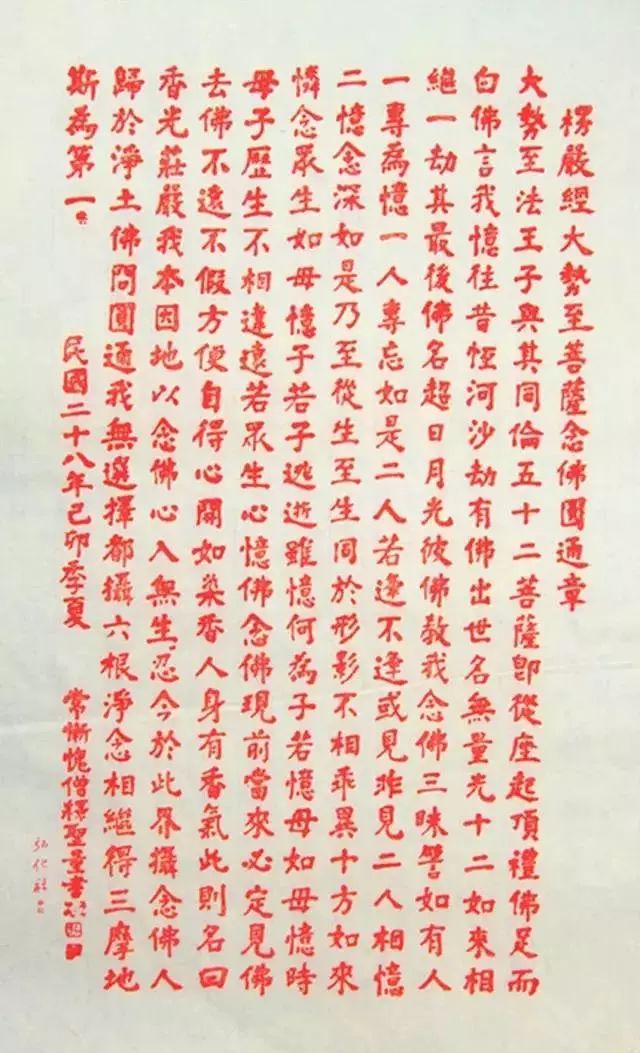 楞嚴經大勢至菩薩念佛圓通章
大勢至法王子與其同倫五十二菩薩卽從座起頂禮佛足而
白佛言我憶往昔恆河沙劫有佛出世名無量光十二如來相
繼一劫其最後佛名超日月光彼佛教我念佛三昧譬如有人
一專為憶一人專忘如是二人若逢不逢或見非見二人相憶
二憶念深如是乃至從生至生同於形影不相乖異十方如來
憐念眾生如母憶子若子逃逝雖憶何為子若憶母如母憶時
母子歷生不相違遠若眾生心憶佛念佛現前當來必定見佛
去佛不遠不假方便自得心開如染香人身有香氣此則名曰
香光莊嚴我本因地以念佛心入無生忍今於此界攝念佛人
歸於淨土佛問圓通我無選擇都攝六根淨念相繼得三摩地
斯為第一
民國二十八年己卯季夏
常慚愧僧釋聖量書
弘化社